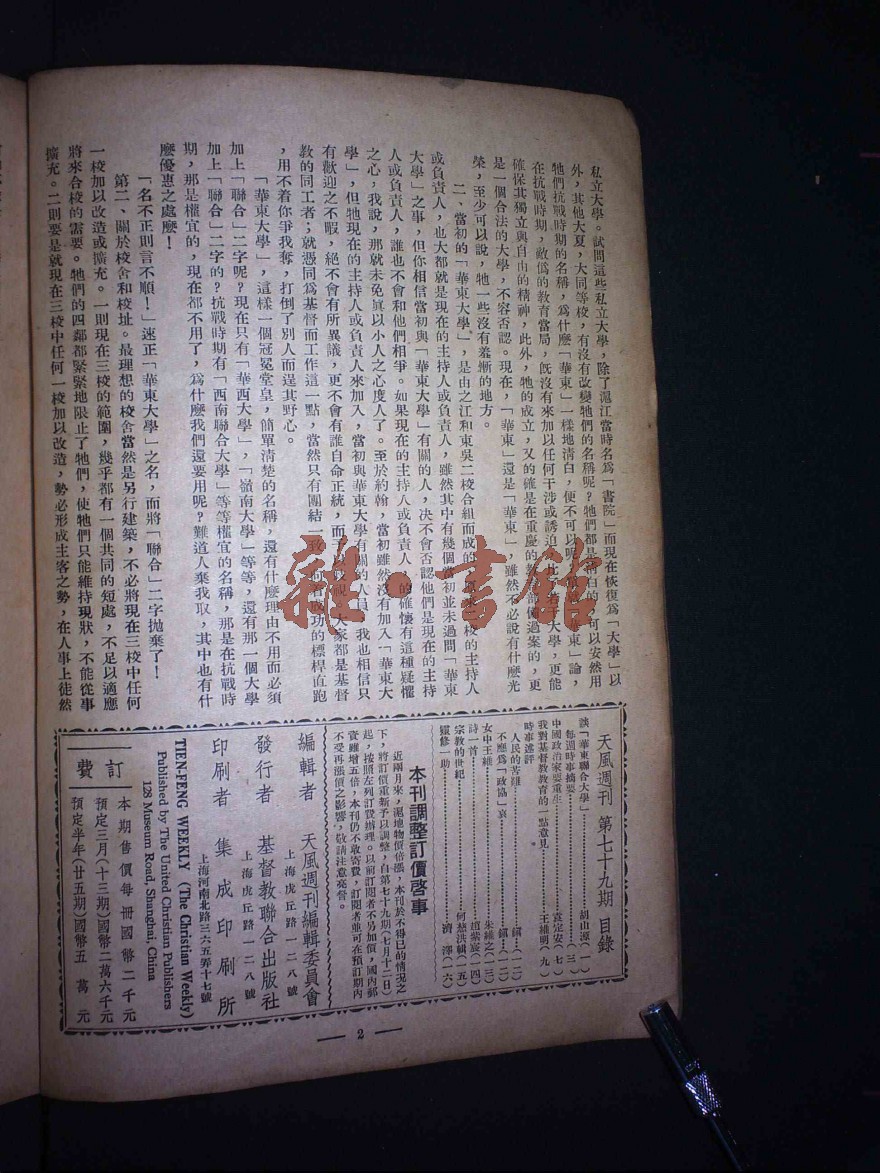 私立大學。試問這些私立大學，除了滬江當時名爲「書院」而現在恢復爲「大學」以
外，其他大夏，大同等校，有沒有改變牠們的名稱呢？牠們都是
白的，可以安然用
牠們抗戰時期的名稱，爲什麼「華東」一樣地清白，便不可以呢
華東」論，
在抗戰時期，敵僞的教育當局，既沒有來加以任何干涉或誘迫，
大學，更能
確保其獨立與自由的精神，此外，牠的成立，又的確是在重慶的教
備過案的，更
是一個合法的大學，不容否認。現在，「華東」還是「華東」，雖然不必說有什麼光
榮，至少可以說，牠一些沒有羞慚的地方。
二、當初的「華東大學」，是由之江和東吳二校合組而成的
校的主持人
或負責人，也大都就是現在的主持人或負責人，雖然其中有幾個當初並未過問「華東
大學」之事，但你相信當初與「華東大學」有關的人，決不會否認他們是現在的主持
人或負責人，誰也不會和他們相爭。如果現在的主持人或負責人，的確懷有這種疑懼
之心，我說，那就未免眞以小人之心度人了。至於約翰，當初雖然沒有加入「華東大
學」，但牠現在的主持人或負責人來加入，當初與華東大學有關的人員，我也相信只
有歡迎之不暇，絕不會有所異議，更不會有誰自命正統，而
大家都是基督
教的同工者；就憑同爲基督而工作這一點，當然只有團結一致
成功的標桿直跑
，用不着你爭我奪，打倒了別人而逞其野心。
「華東大學」，這樣一個冠冕堂皇，簡單清楚的名稱，還有什麼理由不用而必須
加上「聯合」二字呢？現在只有「華西大學」，「嶺南大學」等等，還有那一個大學
加上「聯合」二字的？抗戰時期有「西南聯合大學」等等權宜的名稱，那是在抗戰時
期，那是權宜的，現在都不用了，爲什麼我們還要用呢？難道人棄我取，其中也有什
麼優惠之處麼！
「名不正則言不順！」速正「華東大學」之名，而將「聯合」二字拋棄了！
第二、關於校舍和校址。最理想的校舍當然是另行建築，不必將現在三校中任何
一校加以改造或擴充。一則現在三校的範圍，幾乎都有一個共同的短處，不足以適應
將來合校的需要。牠們的四鄰都緊緊地限止了牠們，使牠們只能維持現狀，不能從事
擴充。二則要是就現在三校中任何一校加以改造，勢必形成主客之勢，在人事上徒然
天風週刊 第七十九期 目錄
談「華東聯合大學」……胡山源（一）
每週時事摘要……（三）
中國政治家要重生……袁定安（七）
我對基督教教育的一點意見……王維明（九）
時事述評
人民的苦難……鎭（一二）
不應爲「政協」哀……鎭（一二）
女中王維……朱維之（一三）
詩一首……趙紫宸（一四）
宗教的世紀……何慈洪輯（一五）
獲修一助……濟澤（一六）
本刊調整訂價啓事
近兩月來，滬地物價倍漲，本刊於不得已的情況之
下，將訂價重新予以調整，自第七十九期（七月十二日）
起，按照左列訂費辦理。以前訂閱者不另加價，國內郵
資雖增五倍，本刊仍不收寄費，訂閱者並可在預訂期內
不受再漲價之影響，敬請注意亮督。
編輯者 天風週刊編輯委員會
上海虎丘路一二八號
發行者 基督教聯合出版社
上海虎丘路一二八號
印刷者 集成印刷所
上海河南北路三六五弄十七號
TIEN-FENG WEEKLY (The Christian Weekly)
Published by The United Christian Publishers
128 Museum Road, Shanghai, China
訂費
本期售價每冊國幣二千元
預定三月（十三期）國幣二萬六千元
預定半年（廿五期）國幣五萬元
— 2 —
雜·書館